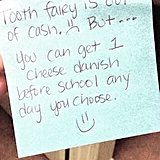 Tooth fairy is out
of cash. But...
you can get 1
cheese danish
before school any
day you choose.